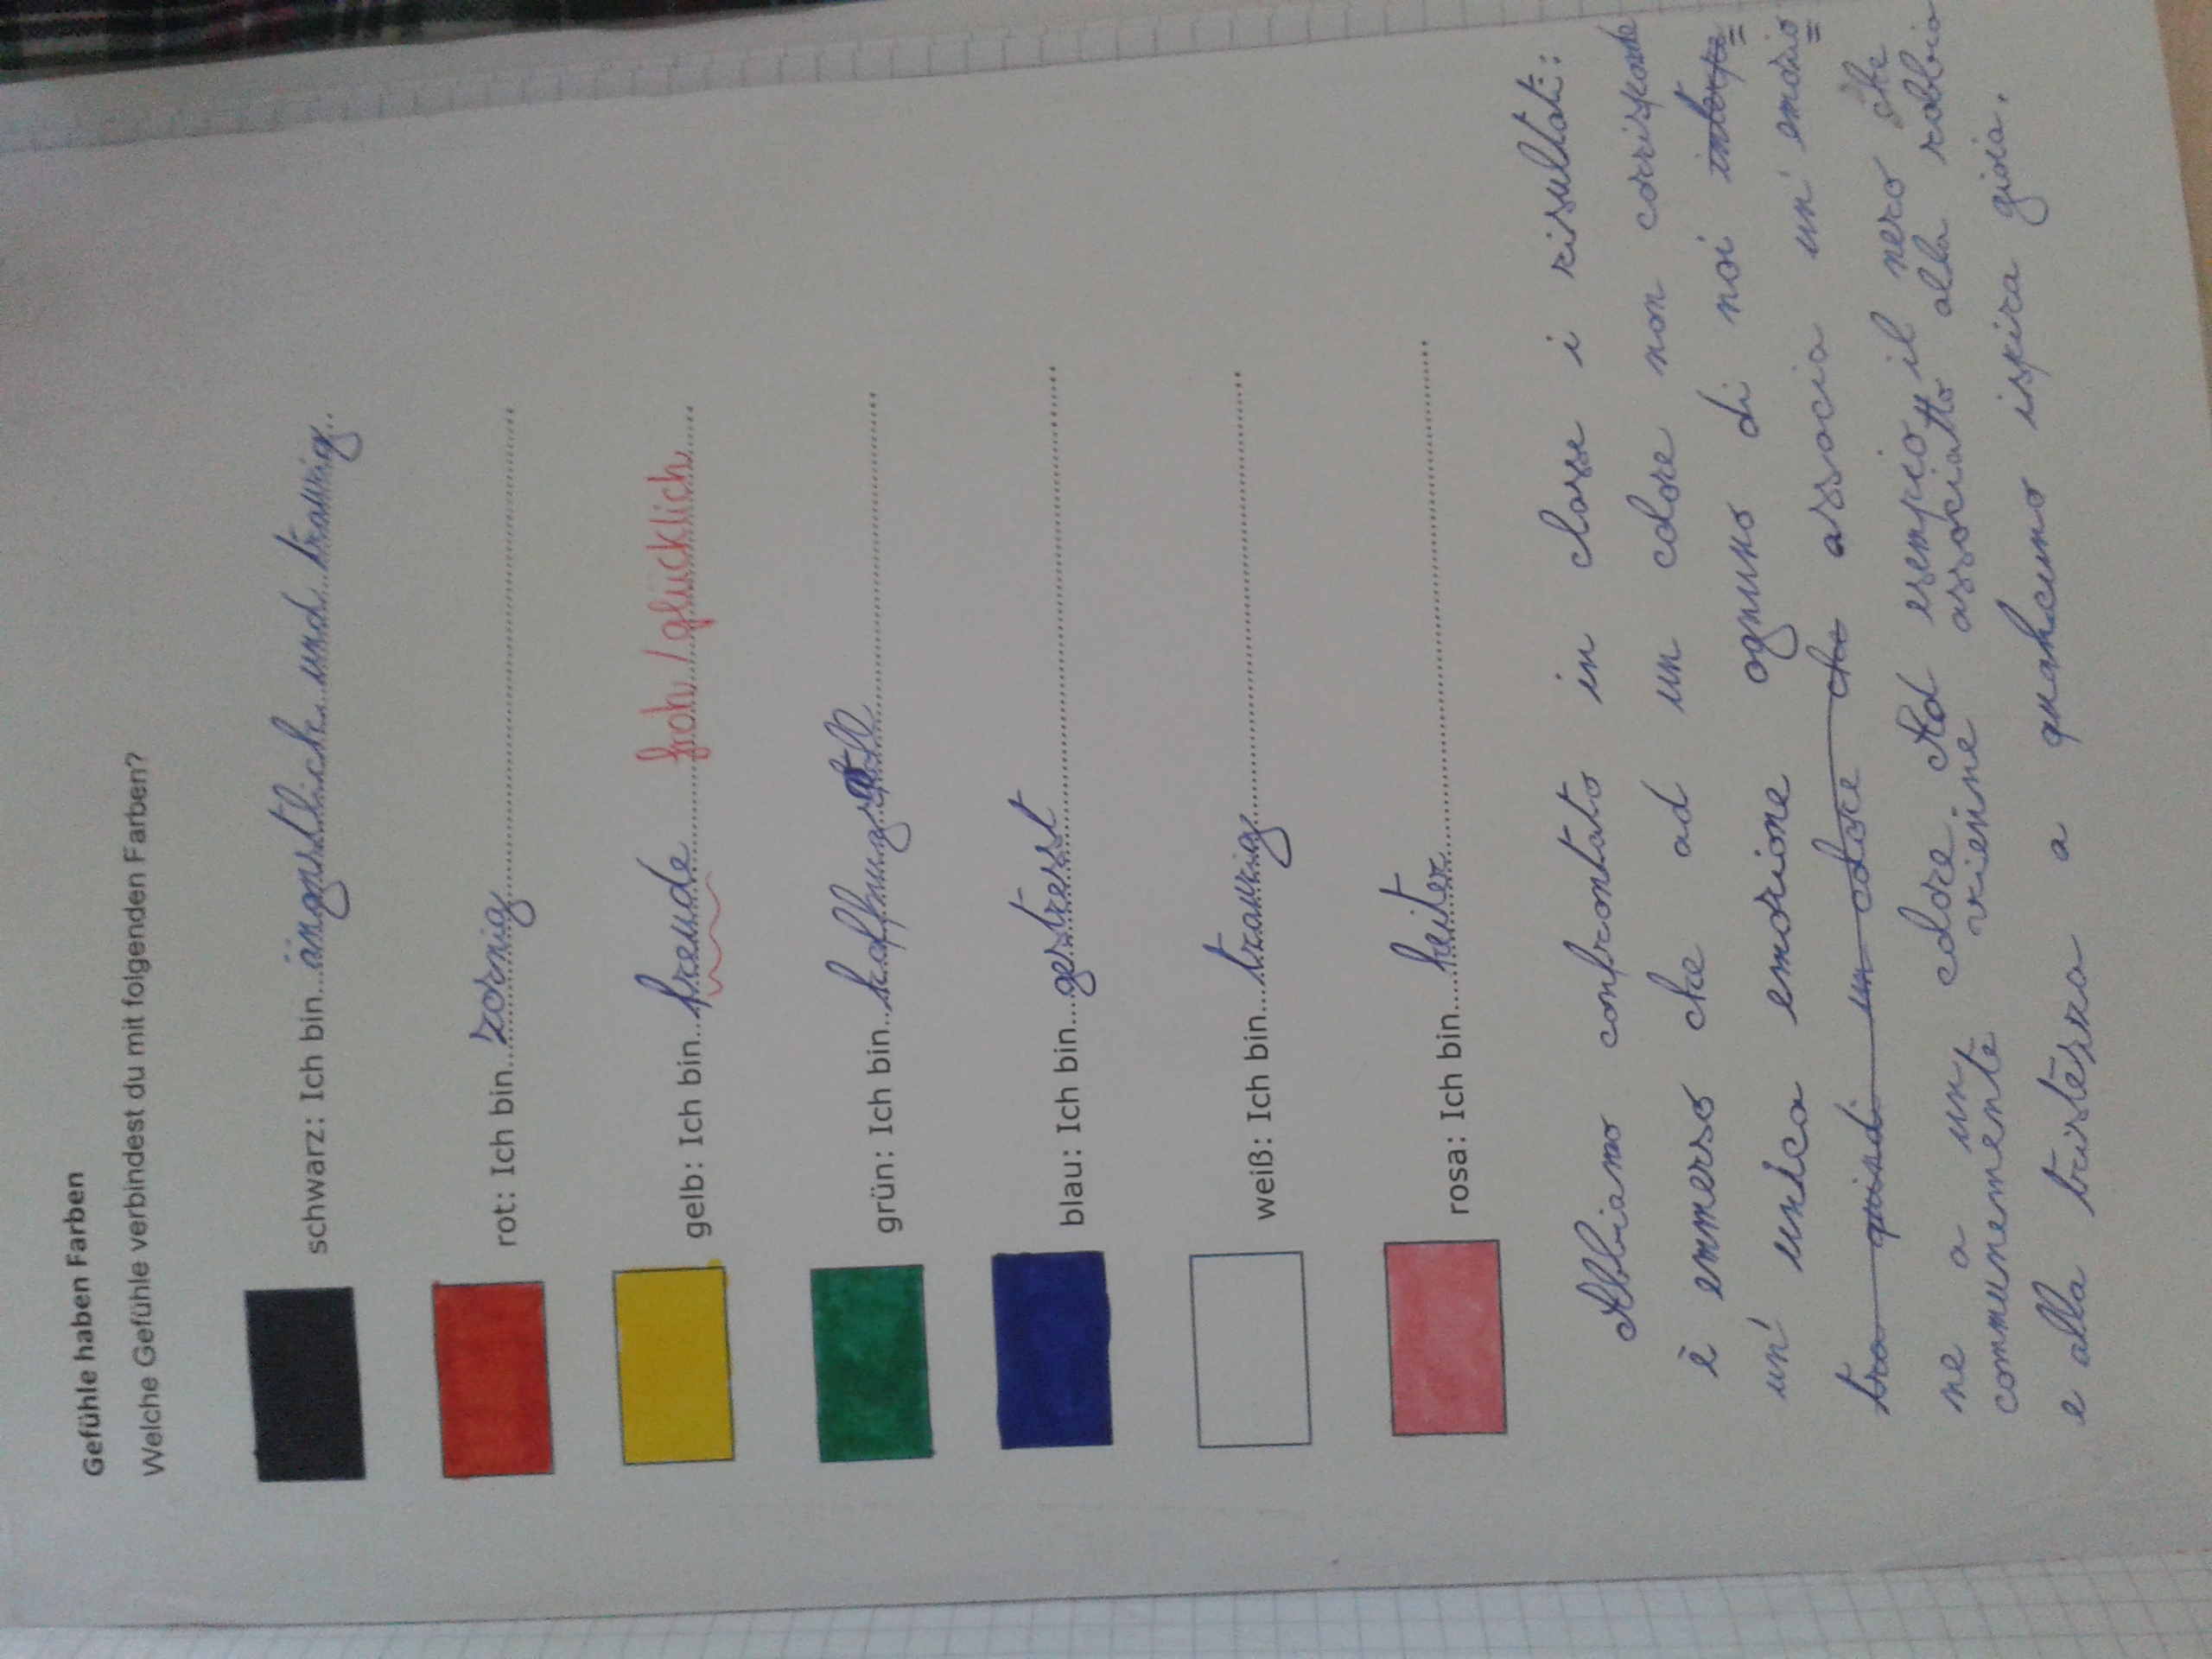 Gefühle haben Farben
Welche Gefühle verbindest du mit folgenden Farben?
schwarz: Ich bin...ängstlich und traurig...
rot: Ich bin...zornig...
gelb: Ich bin...freude... froh / glücklich...
grün: Ich bin...hoffnungsvoll...
blau: Ich bin...gestresst...
weiß: Ich bin...traurig...
rosa: Ich bin...heiter...
Abbiamo confrontato in classe i risultati:
è emmerso che ad un colore non corrisponde
un' unica emozione ognuno di noi interpre=
tra quindi un colore che associa un' emozio=
ne a un colore. Ad esempio il nero che
communemente vienine associatto alla rabbia
e alla tristezza a qualcuno ispira gioia.